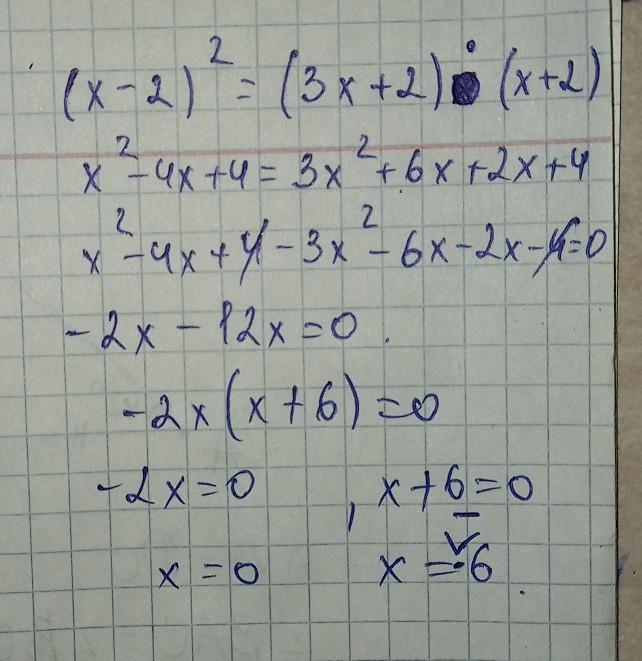 (x-2)² = (3x+2)·(x+2)
x²-4x+4 = 3x²+6x+2x+4
x²-4x+4-3x²-6x-2x-4=0
-2x-12x=0.
-2x(x+6)=0
-2x=0, x+6=0
x=0 x=-6